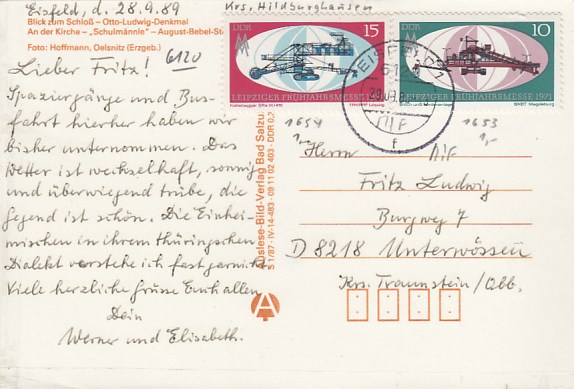 Eisfeld, d. 28.9.89
Krs. Hildburghausen
Blick zum Schloß – Otto-Ludwig-Denkmal
An der Kirche – „Schulmännle" – August-Bebel-St
Foto: Hoffmann, Oelsnitz (Erzgeb.)
6120
Lieber Fritz!
Spaziergänge und Bus-
fahrt hierher haben wir
bisher unternommen. Das
Wetter ist wechselhaft, sonnig
und überwiegend trübe, die
Gegend ist schön. Die Einhei-
mischen in ihrem thüringschen
Dialekt verstehe ich fast garnicht.
Viele herzliche Grüsse Euch allen
Dein
Werner und Elisabeth.
Auslese-Bild-Verlag Bad Salzu.
S 1/87 · IV-14-483 · 09 11 02 403 · DDR 0,2
A
DDR
15
LEIPZIGER FRÜHJAHRSMESSE 1971
DDR
10
LEIPZIGER FRÜHJAHRSMESSE 1971
EISFELD 1
f
1654
1,-
1653
1,-
Herrn
Fritz Ludwig
Burgweg 7
D 8218 Unterwössen
Krs. Traunstein/Obb.